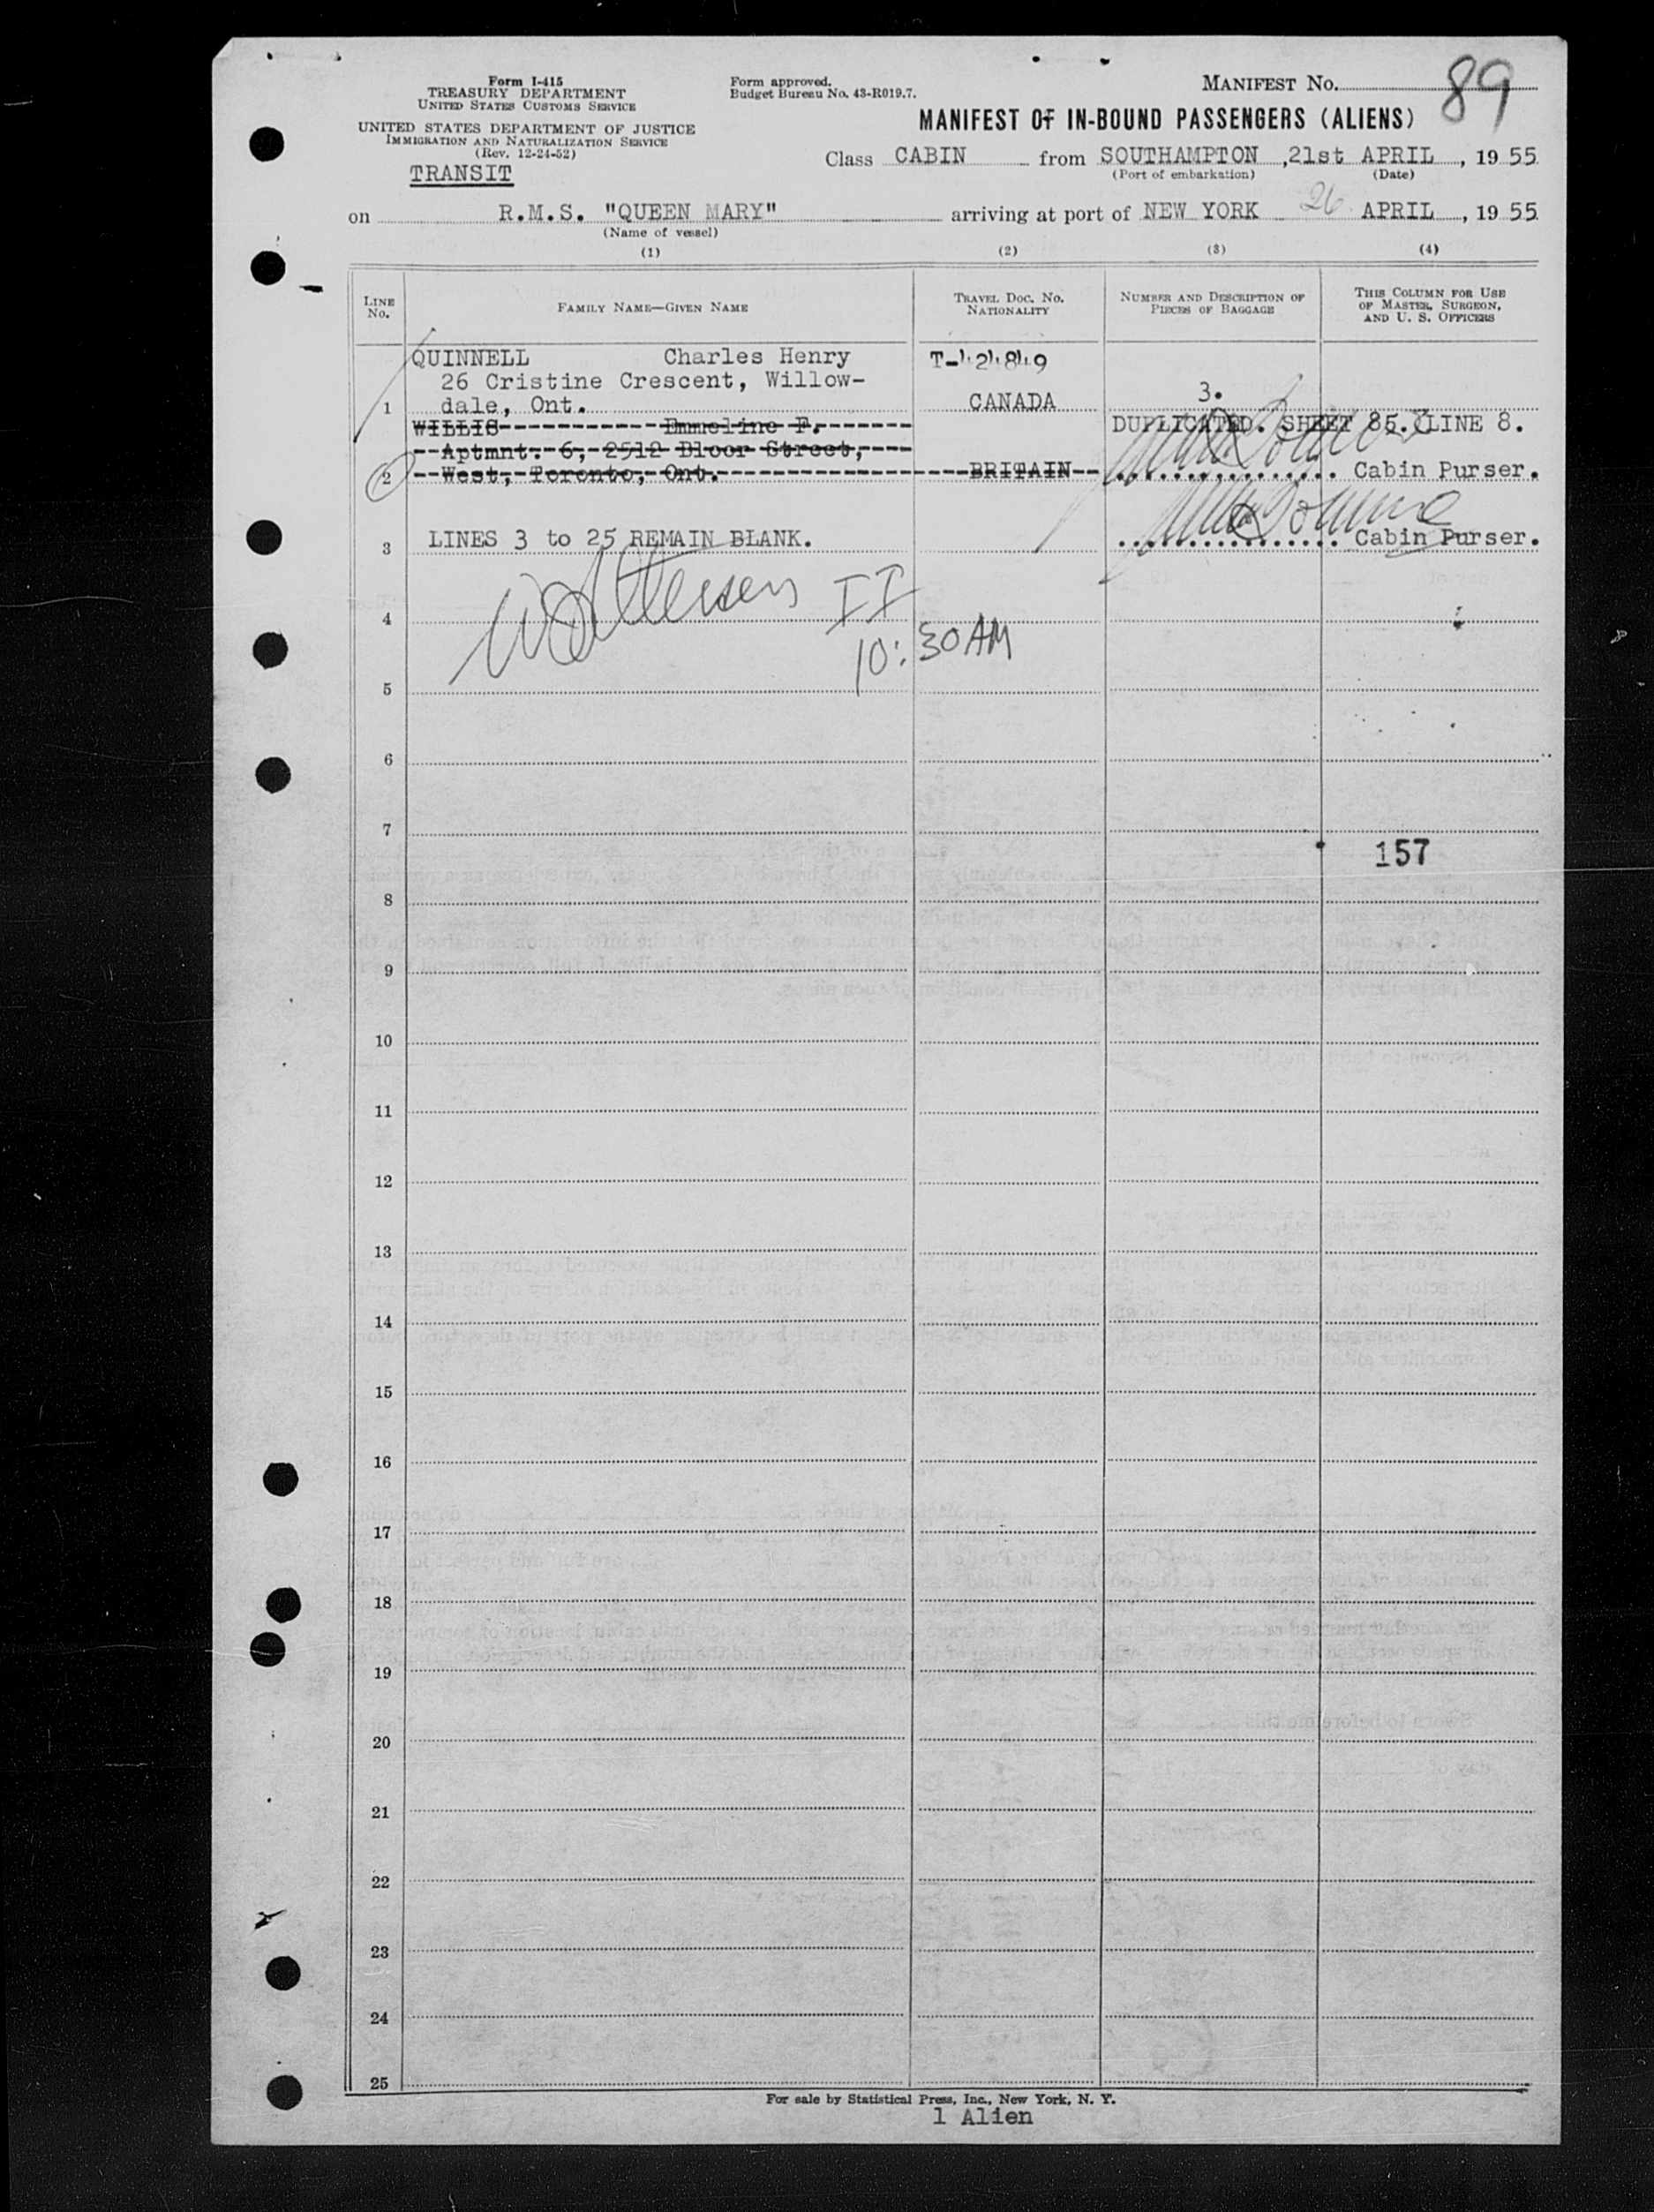 Form I-415
TREASURY DEPARTMENT
UNITED STATES CUSTOMS SERVICE
UNITED STATES DEPARTMENT OF JUSTICE
IMMIGRATION AND NATURALIZATION SERVICE
(Rev. 12-24-52)
TRANSIT
Form approved.
Budget Bureau No. 43-R019.7.
MANIFEST NO. 89
MANIFEST OF IN-BOUND PASSENGERS (ALIENS)
Class CABIN from SOUTHAMPTON, 21st APRIL, 1955
(Port of embarkation) (Date)
on R.M.S. "QUEEN MARY" arriving at port of NEW YORK 26 APRIL, 1955
(Name of vessel)
(1) (2) (3) (4)
LINE NO.
FAMILY NAME—GIVEN NAME
TRAVEL DOC. NO.
NATIONALITY
NUMBER AND DESCRIPTION OF
PIECES OF BAGGAGE
THIS COLUMN FOR USE
OF MASTER, SURGEON,
AND U. S. OFFICERS
QUINNELL Charles Henry
26 Cristine Crescent, Willow-
1 dale, Ont. CANADA 3.
WILLIS----------Emmeline F.-------
--Aptmnt. 6, 2512 Bloor Street,----
2 --West, Toronto, Ont.-----------------BRITAIN--
DUPLICATED. SHEET 85. LINE 8.
................ Cabin Purser.
3 LINES 3 to 25 REMAIN BLANK. ................ Cabin Purser.
II
4
10:30 AM
5
6
7
157
8
9
10
11
12
13
14
15
16
17
18
19
20
21
22
23
24
25
For sale by Statistical Press, Inc., New York, N. Y.
1 Alien